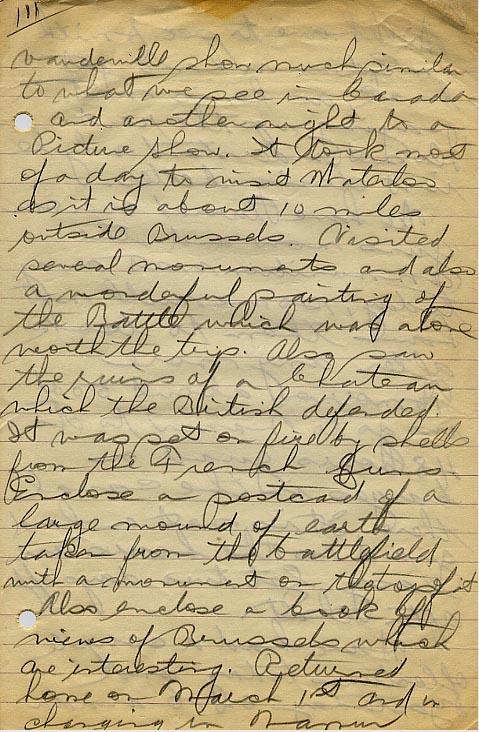 vaudeville show much similar
to what we see in Canada
and another night to a
Picture show. It took most
of a day to visit Waterloo
as it is about 10 miles
outside Brussels. Visited
several monuments and also
a wonderful painting of
the Battle which was alone
worth the trip. Also saw
the ruins of a Chateau
which the British defended.
It was set on fire by shells
from the French Guns
Enclose a postcard of a
large mound of earth
taken from the battlefield
with a monument on the top of it
Also enclose a book of
views of Brussels which
are interesting. Returned
home on March 1st and in
changing in Namur